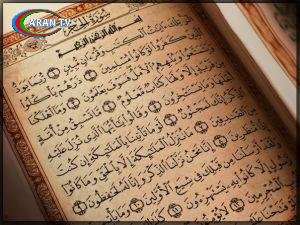 ARAN TV
سورة الحجر
بسم الله الرحمن الرحيم
الر تلك ءايت الكتب وقرءان مبين ١ ربما يود
الذين كفروا لو كانوا مسلمين ٢ ذرهم يأكلوا
ويتمتعوا ويلههم الأمل فسوف يعلمون ٣ وما أهلكنا
من قرية إلا ولها كتاب معلوم ٤ ما تسبق من أمة
أجلها وما يستئخرون ٥ وقالوا يأيها الذي نزل عليه
الذكر إنك لمجنون ٦ لو ما تأتينا بالملئكة إن كنت
من الصدقين ٧ ما ننزل الملئكة إلا بالحق وما كانوا
منظرين ٨ إنا نحن نزلنا الذكر وإنا له لحفظون ٩
أرسلنا من قبلك في شيع الأولين ١٠ وما
رسول إلا كانوا به يستهزءون ١١
المجرمين ١٢ لا يؤمنون